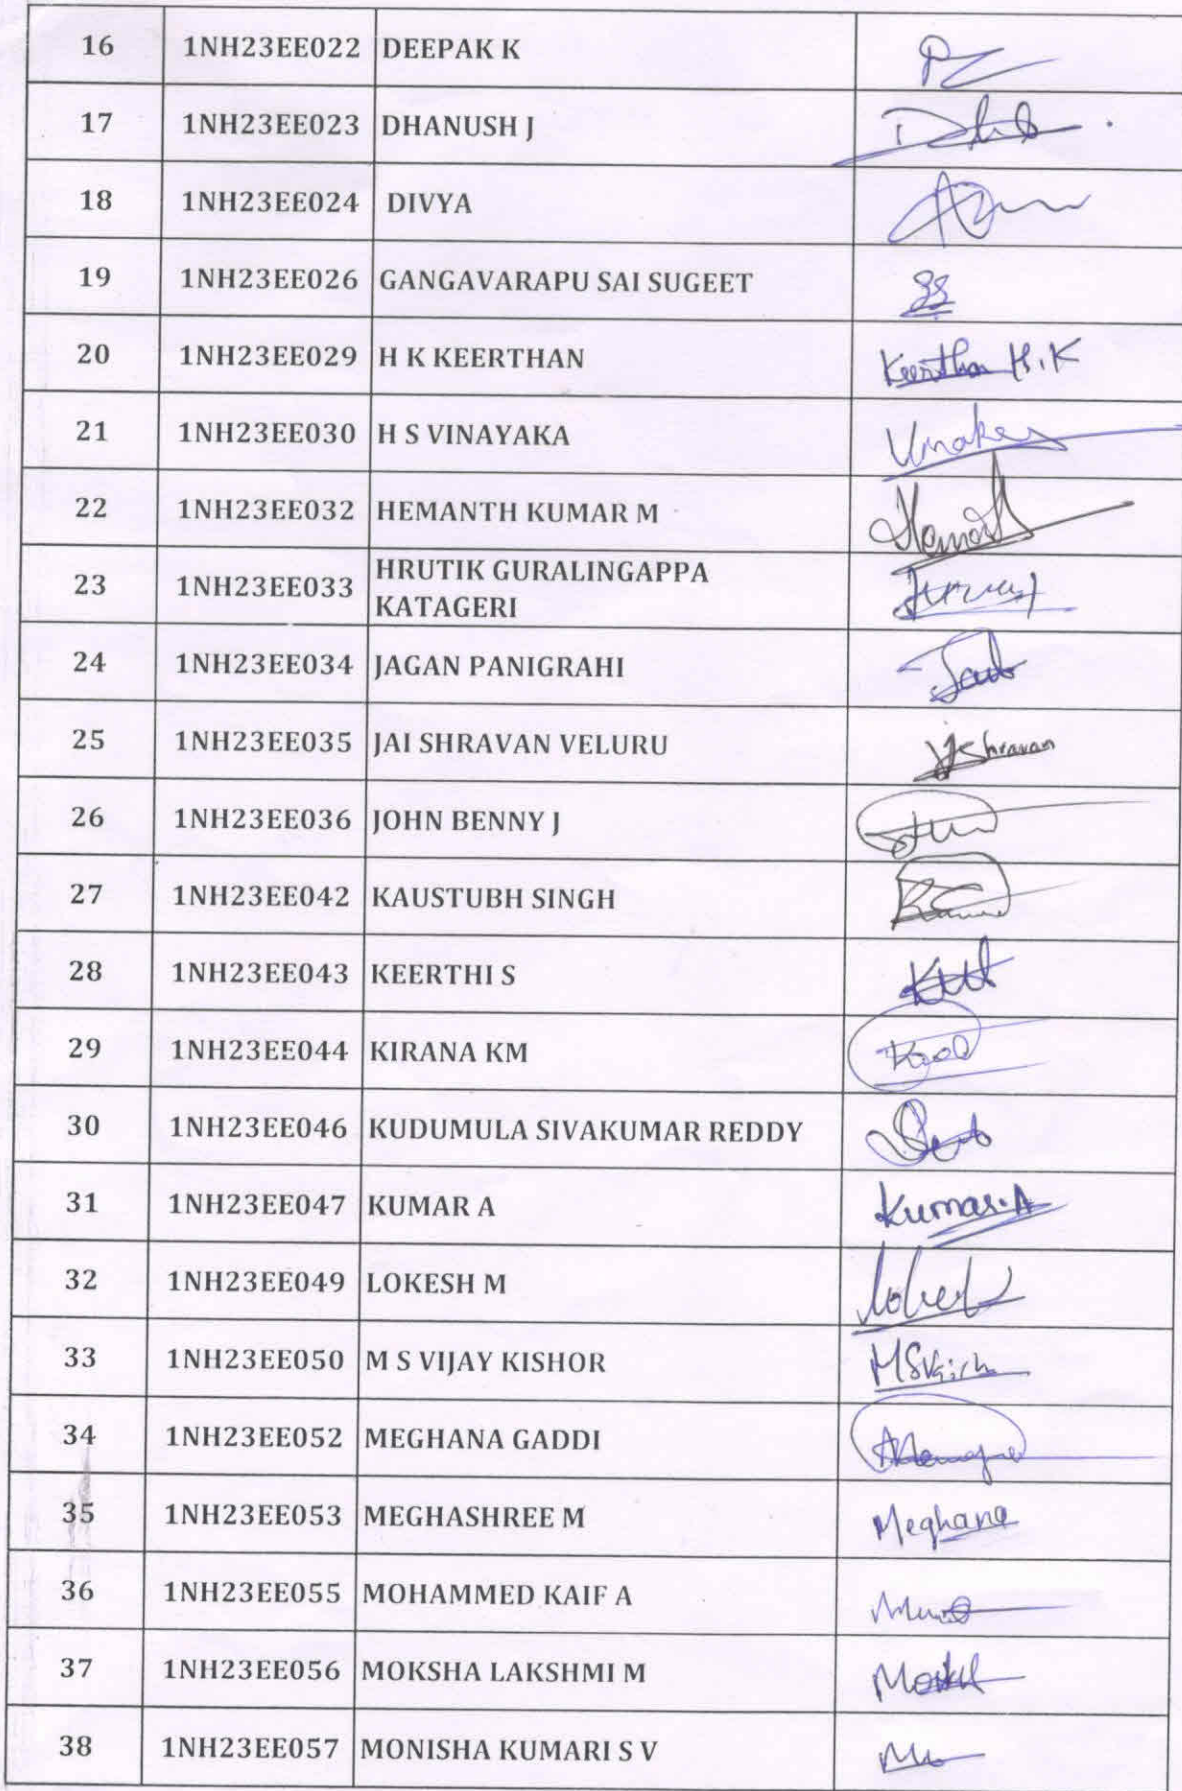 16 1NH23EE022 DEEPAK K
17 1NH23EE023 DHANUSH J
18 1NH23EE024 DIVYA
19 1NH23EE026 GANGAVARAPU SAI SUGEET
20 1NH23EE029 H K KEERTHAN Keerthan H.K
21 1NH23EE030 H S VINAYAKA
22 1NH23EE032 HEMANTH KUMAR M
23 1NH23EE033 HRUTIK GURALINGAPPA
KATAGERI
24 1NH23EE034 JAGAN PANIGRAHI
25 1NH23EE035 JAI SHRAVAN VELURU
26 1NH23EE036 JOHN BENNY J
27 1NH23EE042 KAUSTUBH SINGH
28 1NH23EE043 KEERTHI S
29 1NH23EE044 KIRANA KM
30 1NH23EE046 KUDUMULA SIVAKUMAR REDDY
31 1NH23EE047 KUMAR A Kumar.A
32 1NH23EE049 LOKESH M
33 1NH23EE050 M S VIJAY KISHOR
34 1NH23EE052 MEGHANA GADDI
35 1NH23EE053 MEGHASHREE M Meghana
36 1NH23EE055 MOHAMMED KAIF A
37 1NH23EE056 MOKSHA LAKSHMI M
38 1NH23EE057 MONISHA KUMARI S V